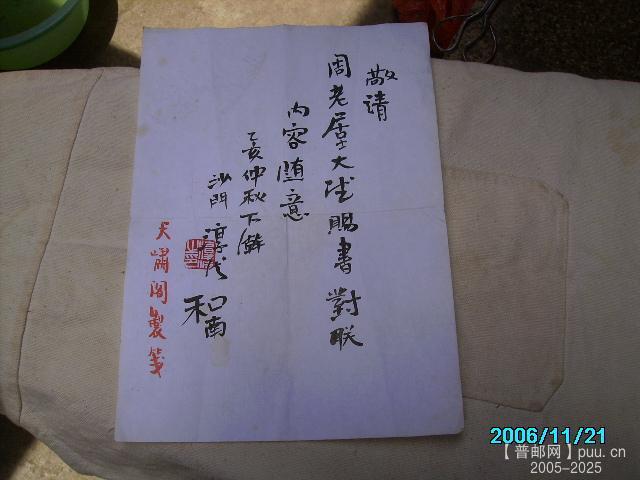 敬请
周老居士大德賜書對联
内容随意
乙亥仲秋下澣
沙門
和南
天嘯阁製箋
2006/11/21
【普邮网】puu.cn
2005-2025